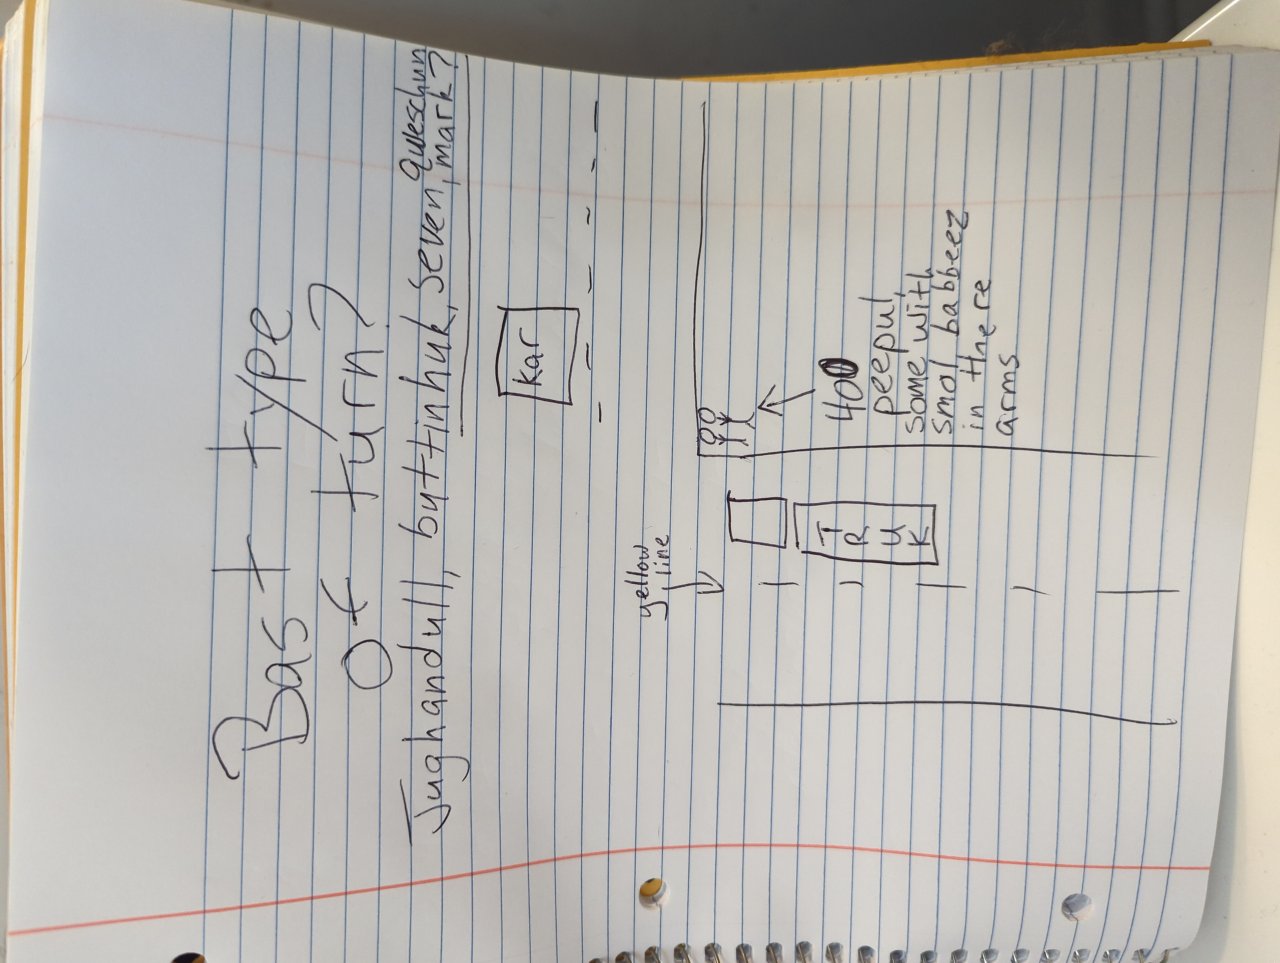 Bast type
of turn?
Jughandull, buttinhuk, seven, queschun
mark?
kar
yellow
line
TRUK
400
peepul,
some with
smol babbeez
in there
arms